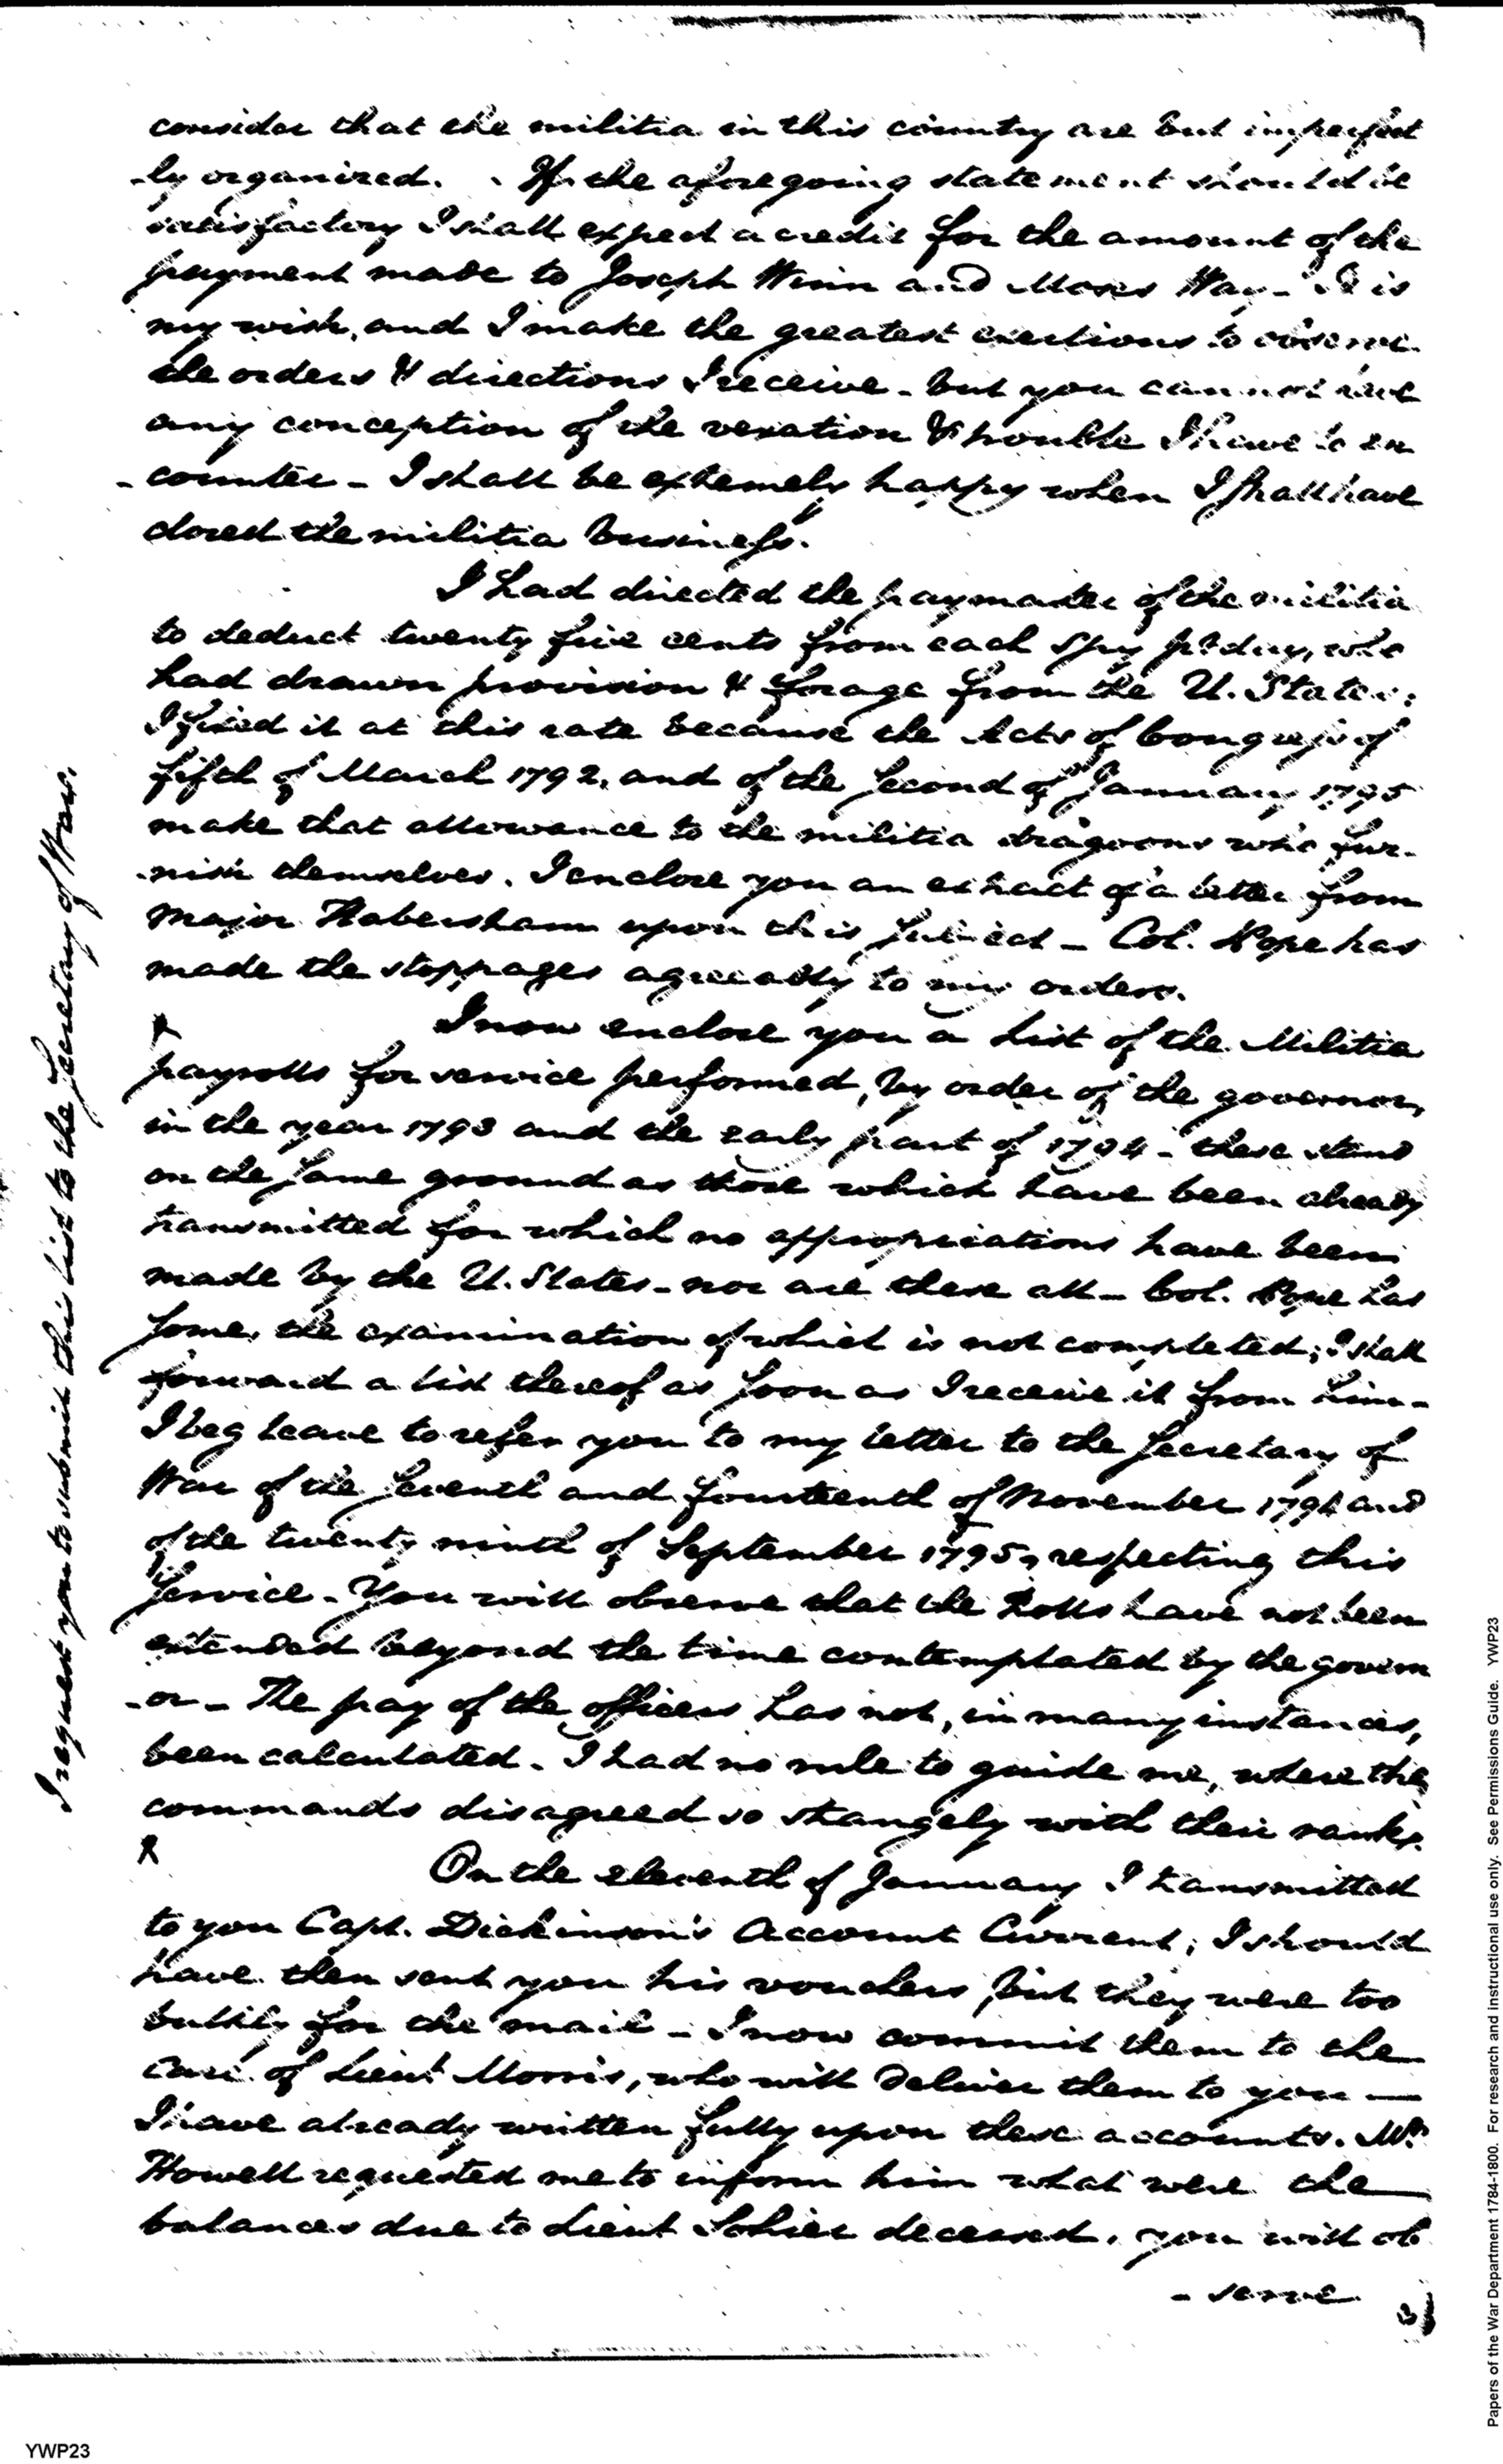 consider that the militia in this country are but imperfect
-ly organized. If the aforegoing statement should be
satisfactory I shall expect a credit for the amount of the
payment made to Joseph Winn and Moses Way - It is
my wish, and I make the greatest exertions to observe
the orders & directions I receive - but you cannot have
any conception of the vexation & trouble I have to en
-counter - I shall be extremely happy when I shall have
closed the militia business.
I had directed the paymaster of the militia
to deduct twenty five cents from each Spy pr day, who
had drawn provision & forage from the U. States:
I fixed it at this rate because the Acts of Congress of
fifth of March 1792, and of the Second of January 1795
make that allowance to the militia dragoons who fur-
-nish themselves. I enclose you an extract of a letter from
Major Habersham upon this Subject - Col. Pope has
made the stoppages agreeably to my orders.
I now enclose you a List of the Militia
payrolls for service performed, by order of the governor,
in the year 1793 and the early part of 1794 - these stand
on the Same ground as those which have been already
transmitted for which no appropriations have been
made by the U. States - nor are these all - Col. Pope has
Some, the examination of which is not completed; I shall
forward a list thereof as Soon as I receive it from him -
I beg leave to refer you to my letter to the Secretary of
War of the Seventh and fourteenth of November 1794 and
of the twenty ninth of September 1795, respecting this
Service - You will observe that the Rolls have not been
extended beyond the time contemplated by the govern
-or - The pay of the officers has not, in many instances,
been calculated. I had no rule to guide me, where the
commands disagreed so strangely with their ranks.
On the eleventh of January I transmitted
to you Capt. Dickinson's Account Current; I should
have then sent you his vouchers, but they were too
bulky for the mail - I now commit them to the
care of Lieut Morris, who will deliver them to you -
I have already written fully upon these accounts. Mr
Howell requested me to inform him what were the
balances due to Lieut Sohier deceased, you will ob
- serve
I request you to submit this list to the Secretary of War.
Papers of the War Department 1784-1800. For research and instructional use only. See Permissions Guide. YWP23
YWP23